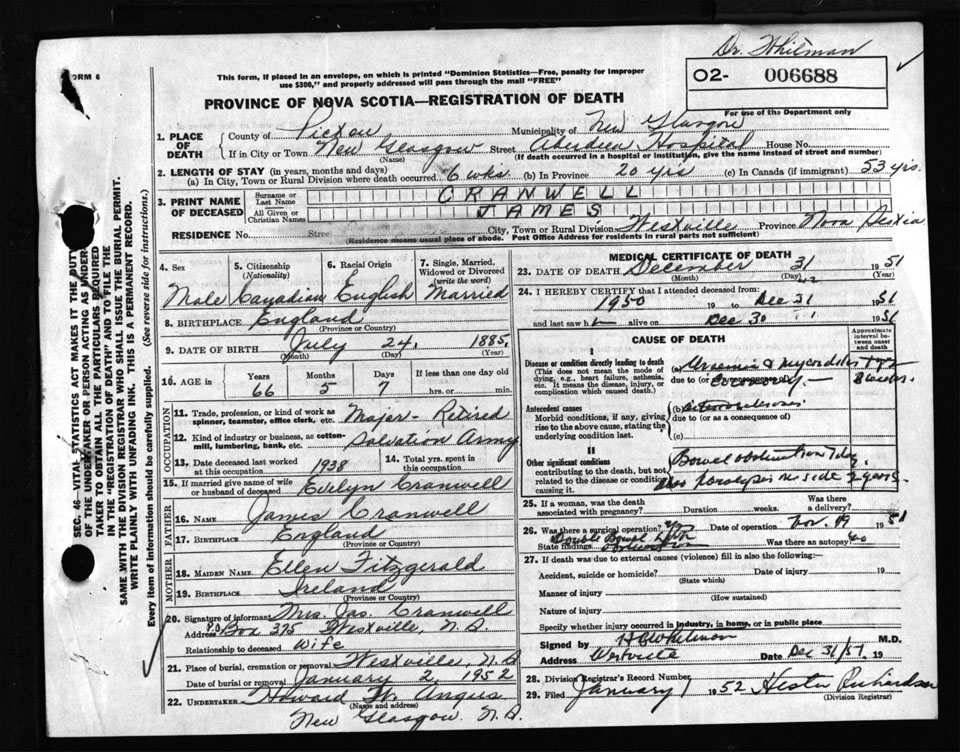 Dr. Whitman
FORM 6
This form, if placed in an envelope, on which is printed "Dominion Statistics—Free, penalty for improper
use $300," and properly addressed will pass through the mail "FREE"
O2- 006688
For use of the Department only
PROVINCE OF NOVA SCOTIA—REGISTRATION OF DEATH
1. PLACE OF DEATH
County of Pictou Municipality of New Glasgow
If in City or Town New Glasgow Street Aberdeen Hospital House No.
(Name) (If death occurred in a hospital or institution, give the name instead of street and number)
2. LENGTH OF STAY (in years, months and days)
(a) In City, Town or Rural Division where death occurred 6 wks. (b) In Province 20 yrs (c) In Canada (if immigrant) 53 yrs.
3. PRINT NAME OF DECEASED
Surname or Last Name CRANWELL
All Given or Christian Names JAMES
RESIDENCE No. Street City, Town or Rural Division Westville Province Nova Scotia
(Residence means usual place of abode. Post Office Address for residents in rural parts not sufficient)
SEC. 46—VITAL STATISTICS ACT MAKES IT THE DUTY
OF THE UNDERTAKER OR PERSON ACTING AS UNDER-
TAKER TO OBTAIN ALL THE PARTICULARS REQUIRED
IN THE "REGISTRATION OF DEATH" AND TO FILE THE
SAME WITH THE DIVISION REGISTRAR WHO SHALL ISSUE THE BURIAL PERMIT.
WRITE PLAINLY WITH UNFADING INK. THIS IS A PERMANENT RECORD.
Every item of information should be carefully supplied. (See reverse side for instructions.)
4. Sex Male
5. Citizenship (Nationality) Canadian
6. Racial Origin English
7. Single, Married, Widowed or Divorced (write the word) Married
8. BIRTHPLACE England
(Province or Country)
9. DATE OF BIRTH July 24, 1885
(Month) (Day) (Year)
10. AGE in Years Months Days If less than one day old
66 5 7 hrs. or min.
OCCUPATION
11. Trade, profession, or kind of work as
spinner, teamster, office clerk, etc. Major - Retired
12. Kind of industry or business, as cotton-
mill, lumbering, bank, etc. Salvation Army
13. Date deceased last worked at this occupation 1938
14. Total yrs. spent in this occupation
15. If married give name of wife
or husband of deceased Evelyn Cranwell
FATHER
16. NAME James Cranwell
17. BIRTHPLACE England
(Province or Country)
MOTHER
18. MAIDEN NAME Ellen Fitzgerald
19. BIRTHPLACE Ireland
(Province or Country)
20. Signature of informant Mrs. Jas. Cranwell
Address P.O. Box 375 Westville, N.S.
Relationship to deceased Wife
21. Place of burial, cremation or removal Westville, N.S.
Date of burial or removal January 2, 1952
22. UNDERTAKER Howard W. Angus
(Name and address)
New Glasgow. N.S.
MEDICAL CERTIFICATE OF DEATH
23. DATE OF DEATH December 31 1951
(Month) (Day) (Year)
24. I HEREBY CERTIFY that I attended deceased from:
1950 19 to Dec 31 1951
and last saw h alive on Dec 30 1951
CAUSE OF DEATH
Approximate interval between onset and death
I
Disease or condition directly leading to death
(This does not mean the mode of
dying, e.g., heart failure, asthenia,
etc. It means the disease, injury, or
complication which caused death.)
(a)
due to (or as a consequence of)
Antecedent causes
Morbid conditions, if any, giving
rise to the above cause, stating the
underlying condition last.
(b)
due to (or as a consequence of)
(c)
II
Other significant conditions
contributing to the death, but not
related to the disease or condition
causing it.
Bowel obstruction
paralysis side 2 years.
25. If a woman, was the death
associated with pregnancy? Duration weeks. Was there a delivery?
26. Was there a surgical operation? yes Date of operation Nov. 19 1951
State findings Double Bowel Was there an autopsy? no
27. If death was due to external causes (violence) fill in also the following:—
Accident, suicide or homicide? Date of injury 19
(State which)
Manner of injury
(How sustained)
Nature of injury
Specify whether injury occurred in industry, in home, or in public place
Signed by H B Whitman M.D.
Address Westville Date Dec 31/51 19
28. Division Registrar's Record Number
29. Filed January 1 1952 Hester Richardson
(Division Registrar)